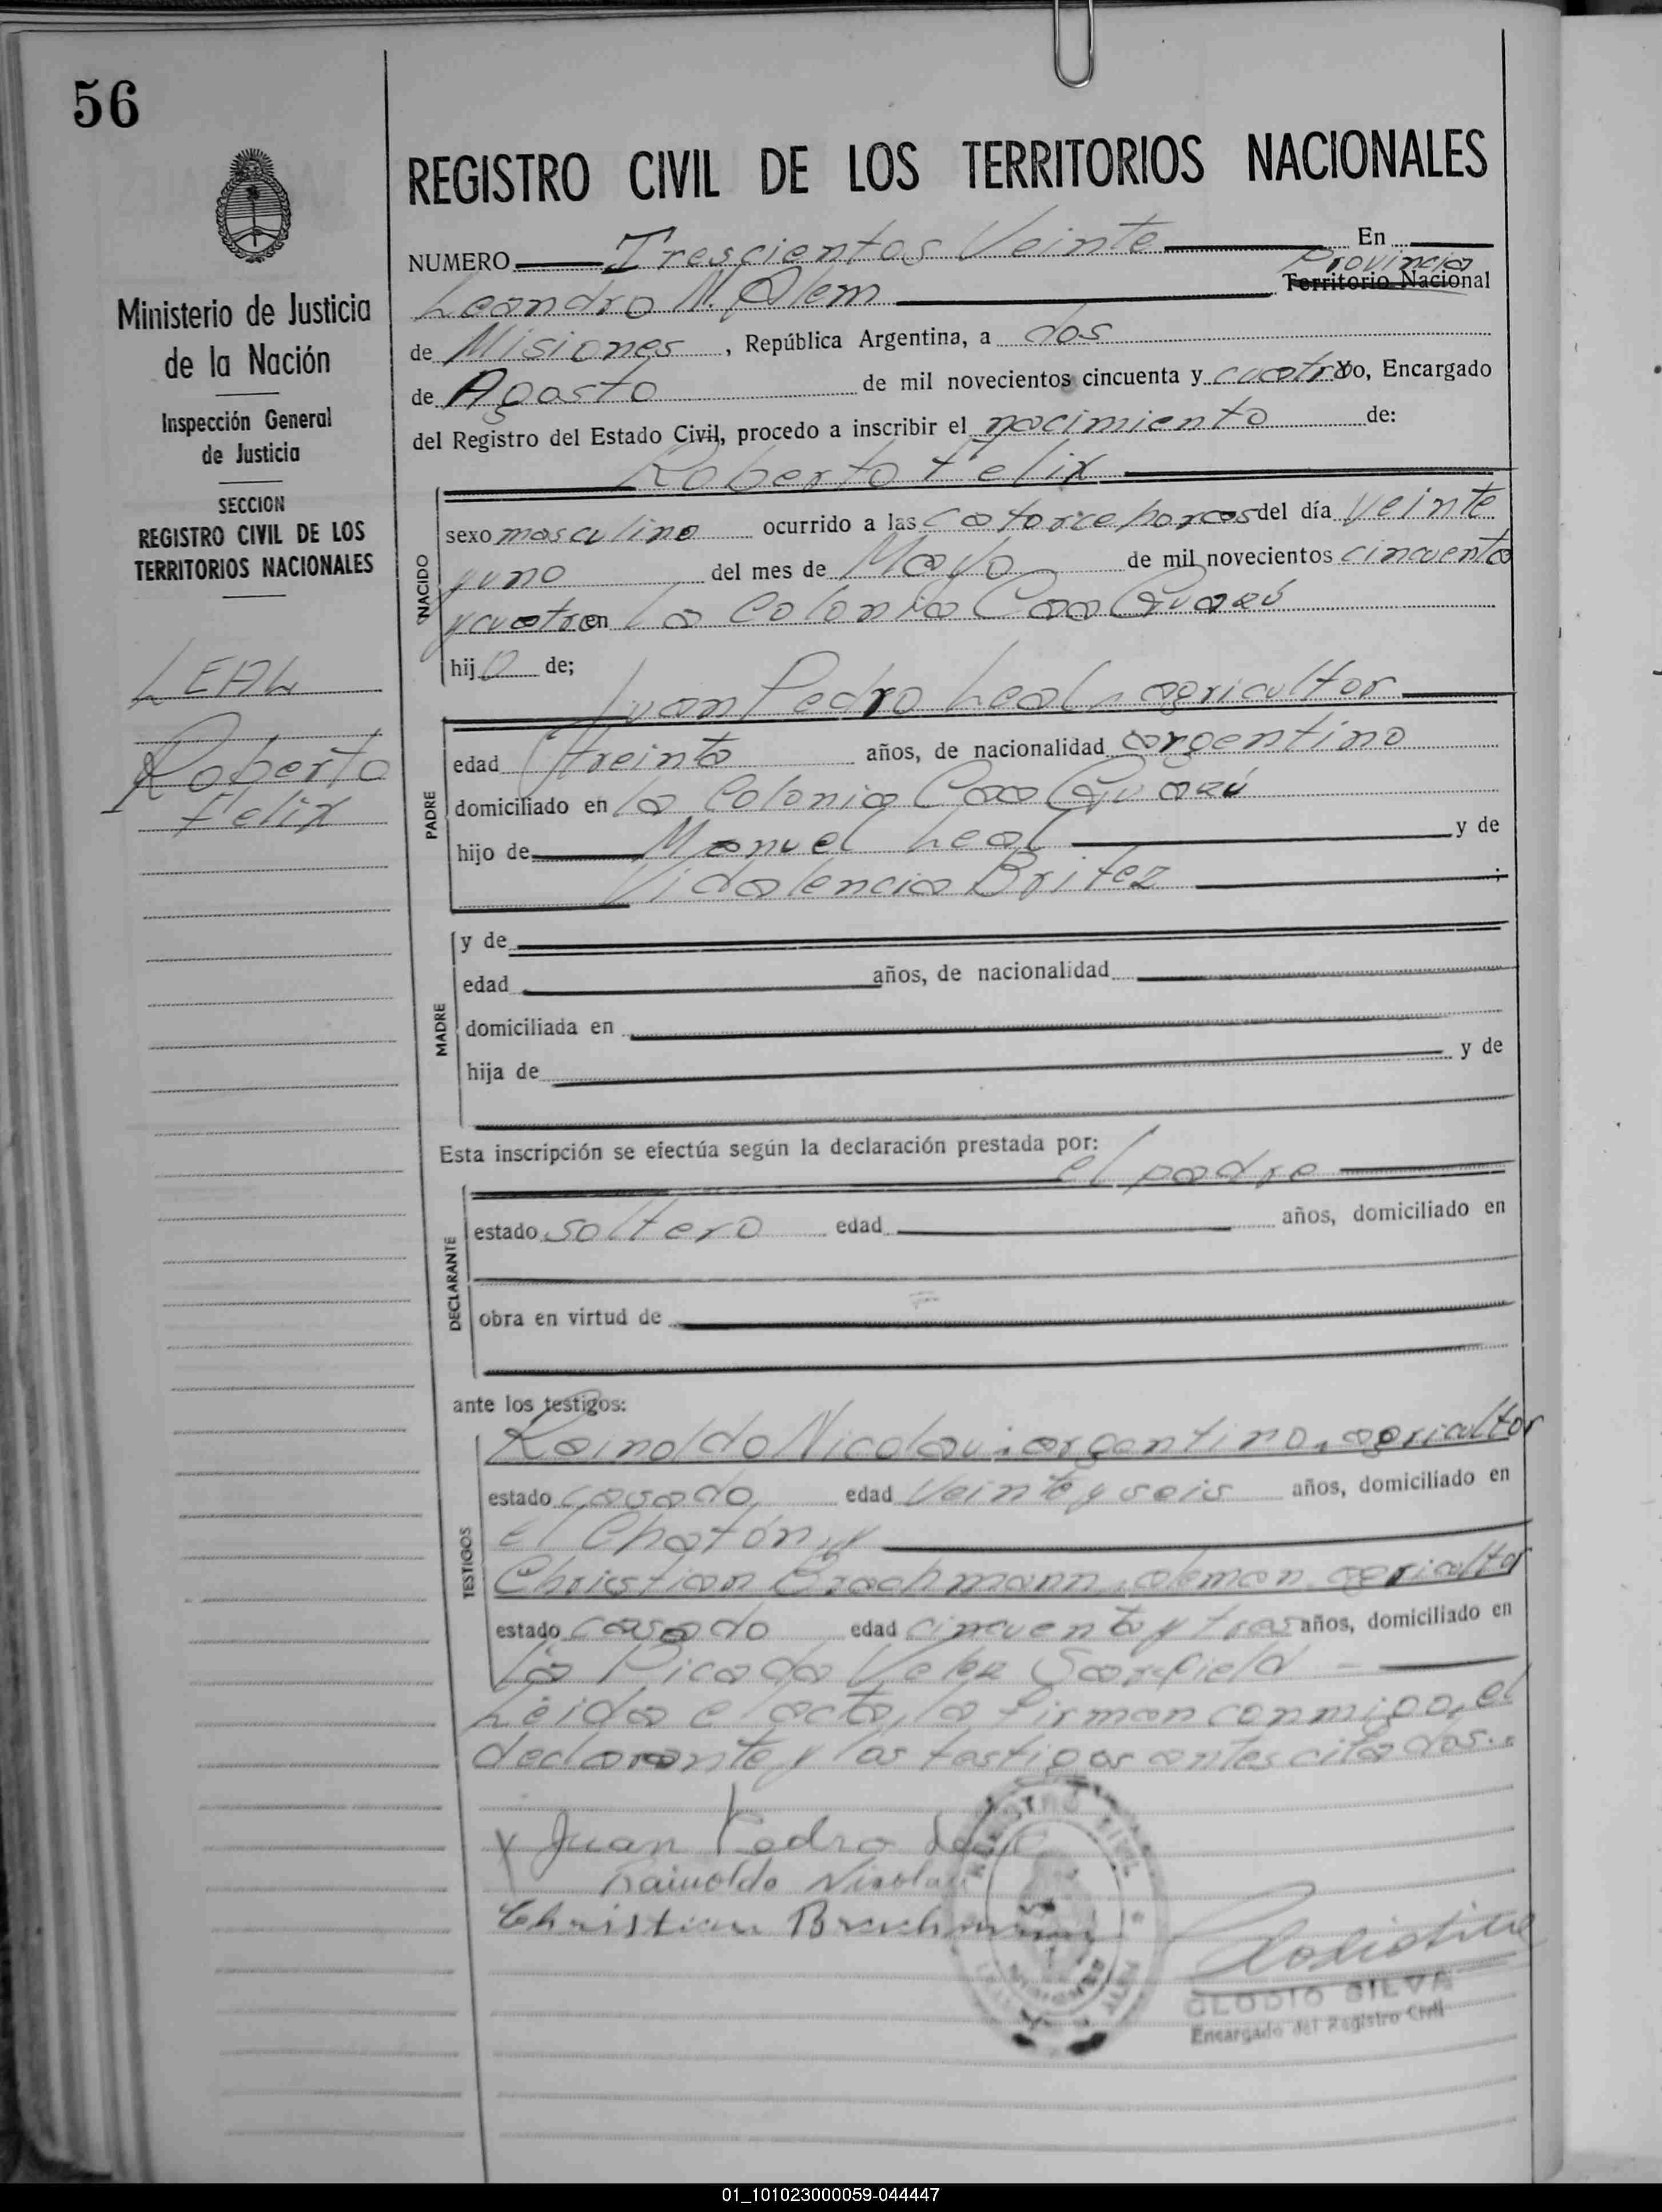 56
REGISTRO CIVIL DE LOS TERRITORIOS NACIONALES
Ministerio de Justicia
de la Nación
Inspección General
de Justicia
SECCION
REGISTRO CIVIL DE LOS
TERRITORIOS NACIONALES
LEAL
Roberto
Felix
NUMERO Trescientos Veinte En
Leandro N. Alem Provincia Territorio Nacional
de Misiones, República Argentina, a dos
de Agosto de mil novecientos cincuenta y cuatro Yo, Encargado
del Registro del Estado Civil, procedo a inscribir el nacimiento de:
Roberto Felix
NACIDO
sexo masculino ocurrido a las catorce horas del día veinte
yuno del mes de Mayo de mil novecientos cincuenta
ycuatro en la Colonia Caa Guazú
hijo de;
Juan Pedro Leal, agricultor
PADRE
edad treinta años, de nacionalidad argentino
domiciliado en la Colonia Caa Guazú
hijo de Manuel Leal y de
Vidalencia Britez ;
MADRE
y de
edad años, de nacionalidad
domiciliada en
hija de y de
Esta inscripción se efectúa según la declaración prestada por:
el padre
DECLARANTE
estado soltero edad años, domiciliado en
obra en virtud de
ante los testigos:
TESTIGOS
Reinoldo Nicolau, argentino, agricultor
estado casado edad veinte y seis años, domiciliado en
El Chatón y
Christian Brachmann, aleman, agricultor
estado casado edad cincuenta y tres años, domiciliado en
la Picada Velez Sarsfield
Leida el acta, la firman conmigo, el
declarante y los testigos antes citados.
Juan Pedro Leal
Rainoldo Nicolau
Christian Brachmann
REGISTRO CIVIL
CLODIO SILVA
Encargado del Registro Civil
01_101023000059-044447